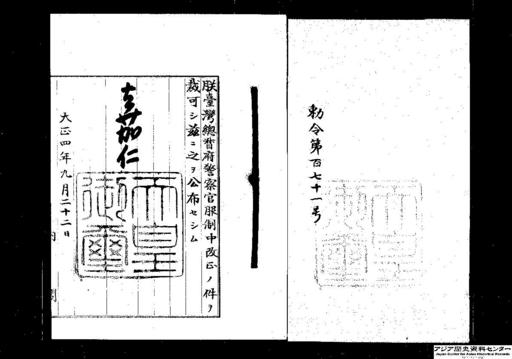 勅令第百七十一号
朕臺灣總督府警察官服制中改正ノ件ヲ
裁可シ茲ニ之ヲ公布セシム
嘉仁
天皇御璽
大正四年九月二十二日
内閣
アジア歴史資料センター
Japan Center for Asian Historical Records